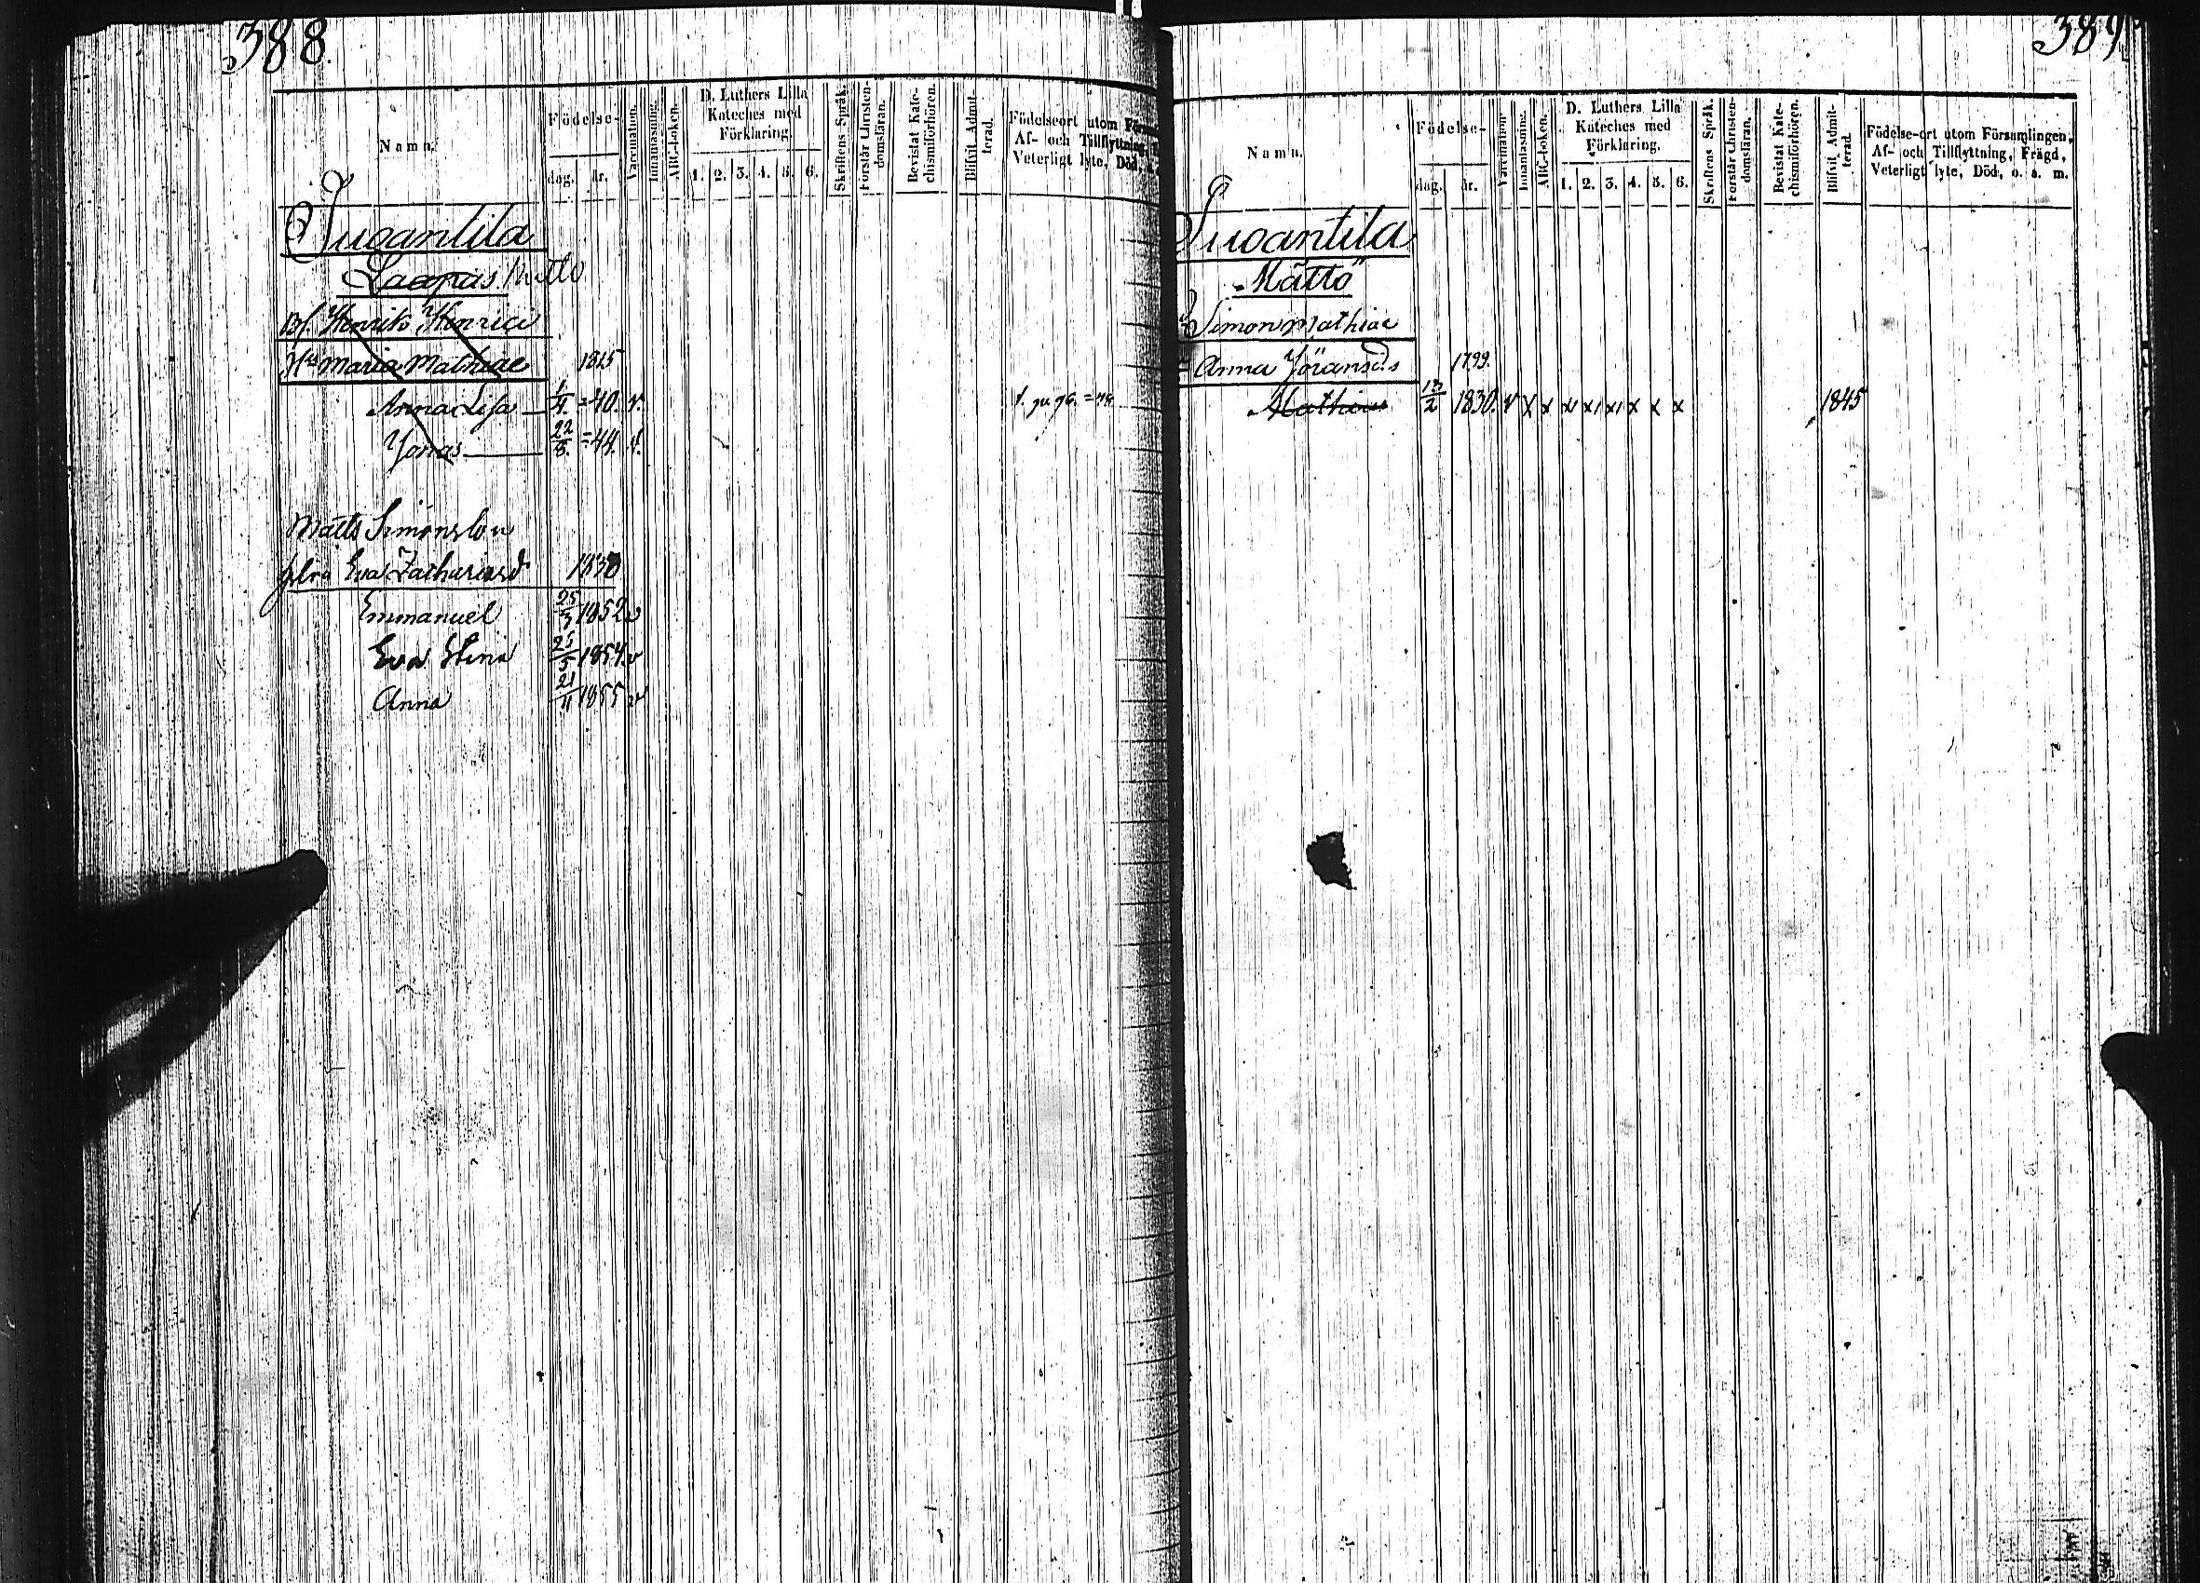 388
Namn.
Födelse-
dag. år.
Vaccination.
Innanläsning.
ABC-boken.
D. Luthers Lilla
Kateches med
Förklaring.
1. 2. 3. 4. 5. 6.
Skriftens Språk.
Förstår Christen-
domsläran.
Bevistat Kate-
chismiförhören.
Blifvit Admit-
terad.
Födelseort utom
Af- och Tillflyttning,
Veterligt lyte, Död,
Laapas Matts
Bf. Henrik Henrici
Hu Maria Mathiae 1815
Anna Lisa 1/4. =40. v.
Jonas 22/8. =44. v.
Matts Simonson
hustru Eva Zachariasd 1830
Emmanuel 25/3 1852 v
Eva Stina 25/5 1854 v
Anna 21/11 1855 v
389
Namn.
Födelse-
dag. år.
Vaccination.
Innanläsning.
ABC-boken.
D. Luthers Lilla
Kateches med
Förklaring.
1. 2. 3. 4. 5. 6.
Skriftens Språk.
Förstår Christen-
domsläran.
Bevistat Kate-
chismiförhören.
Blifvit Admit-
terad.
Födelse-ort utom Församlingen,
Af- och Tillflyttning, Frägd,
Veterligt lyte, Död, o. s. m.
Mättö
Simon Mathiae
Anna Jöransd:s 1799.
Mathias 13/2 1830. v x x x x x x x x 1845